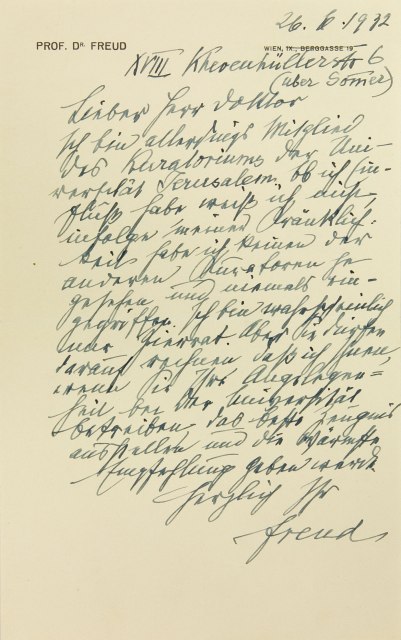 26. V. 1932
PROF. DR FREUD
WIEN, IX., BERGGASSE 19
XVIII Khevenhüllerstr 6
(über Somer)
Lieber Herr Doktor
Ich bin allerdings Mitglied
des Kuratoriums der Uni-
versität Jerusalem. Ob ich Ein-
fluß habe weiß ich nicht,
infolge meiner Kränklich-
keit habe ich keinen der
anderen Kuratoren je
gesehen und niemals ein-
gegriffen. Ich bin wahrscheinlich
nur Zierrat. Aber Sie dürfen
darauf rechnen daß ich Ihnen,
wenn Sie Ihre Angelegen=
heit bei der Universität
betreiben, das beste Zeugnis
ausstellen und die wärmste
Empfehlung geben werde
Herzlich Ihr
Freud